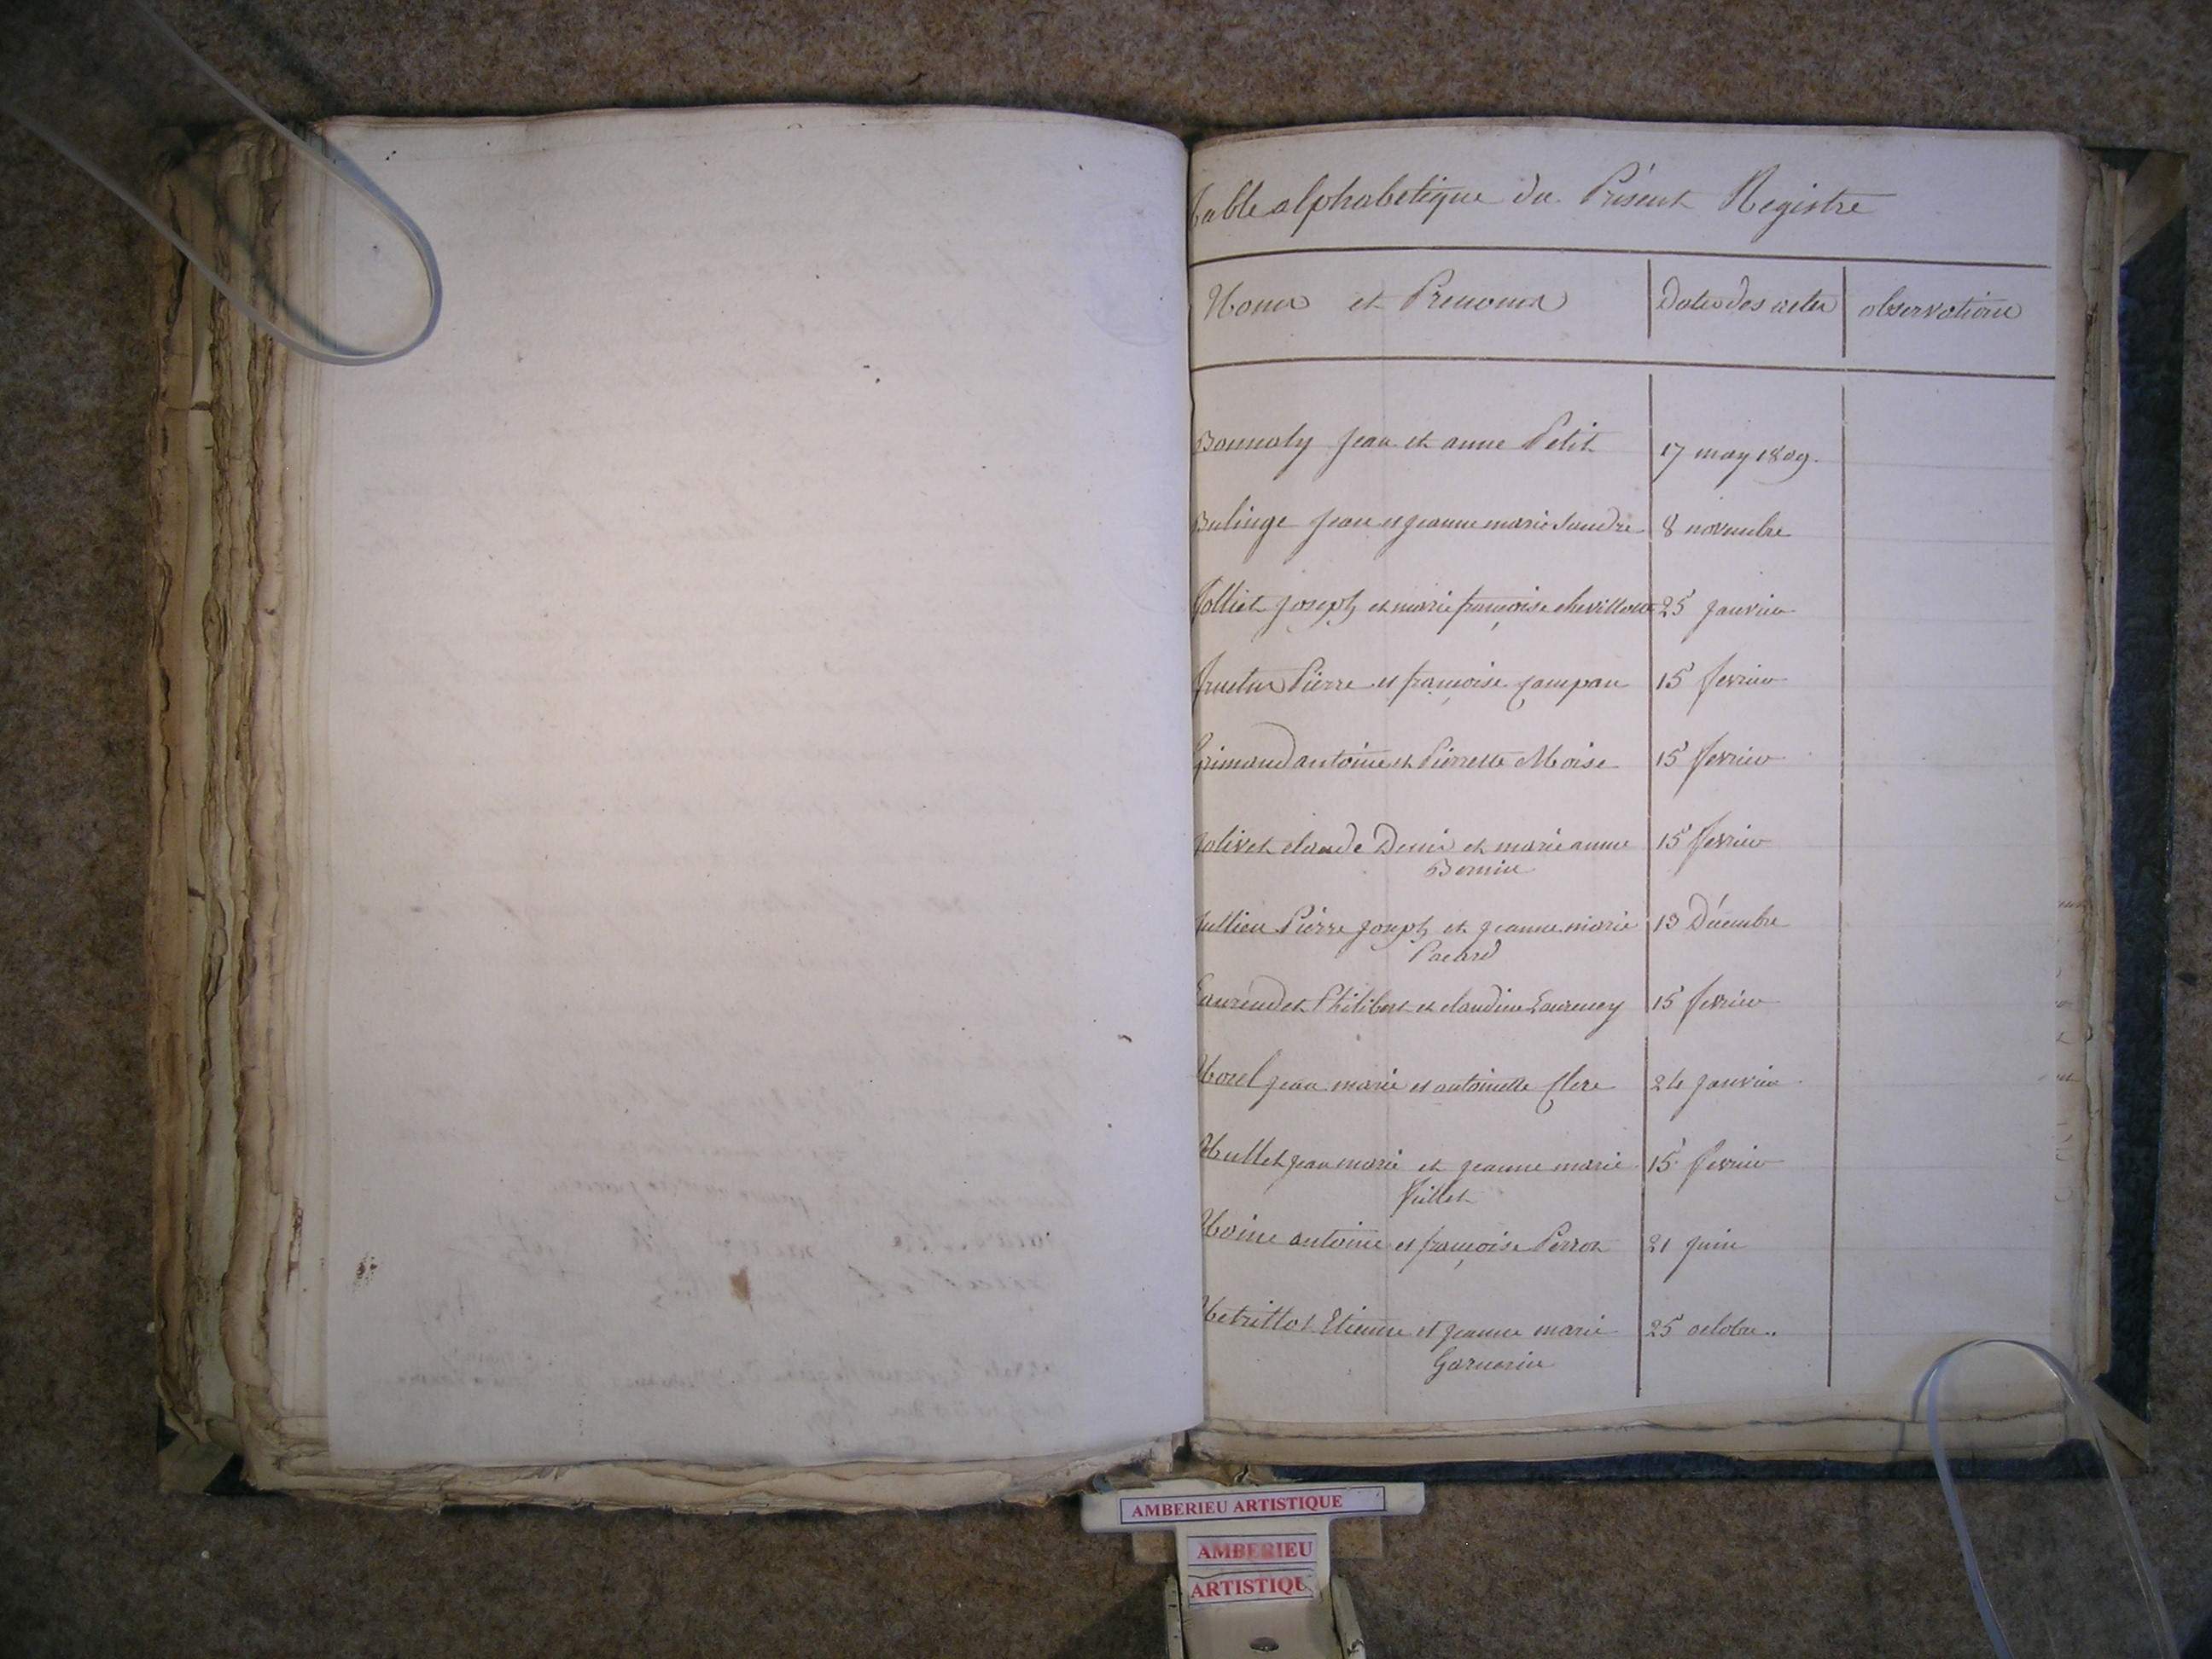 Table alphabetique du Présent Registre
Noms et Prenoms Dates des actes observations
Bonnaly Jean et anne Petit 17 may 1809.
Bulinge Jean et jeanne marie Sandre 8 novembre
Jolliet Joseph et marie françoise chevillon 25 janvier
Pierre et françoise Campan 15 fevrier
Grimaud antoine et Pierrette Moise 15 fevrier
Jolivet claude Denis et marie anne 15 fevrier
Bernin
Jullien Pierre Joseph et jeanne marie 13 Décembre
Pacard
Laurendet Philibert et claudine Laurency 15 fevrier
Morel jean marie et antoinette Clere 24 janvier
Mullet jean marie et jeanne marie 15 fevrier
Juillet
Moine antoine et françoise Perron 21 juin
Metrillot Etienne et jeanne marie 25 octobre..
Garnerin
AMBERIEU ARTISTIQUE
AMBERIEU
ARTISTIQU